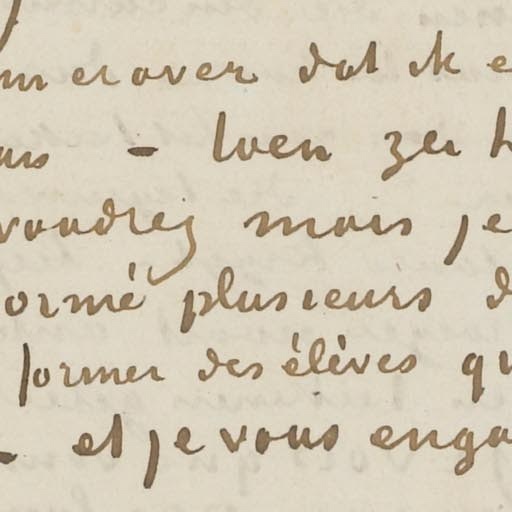 erover dat ik
– toen zei
voudrez mais je
ormé plusieurs d
former des élèves qu
et je vous enga